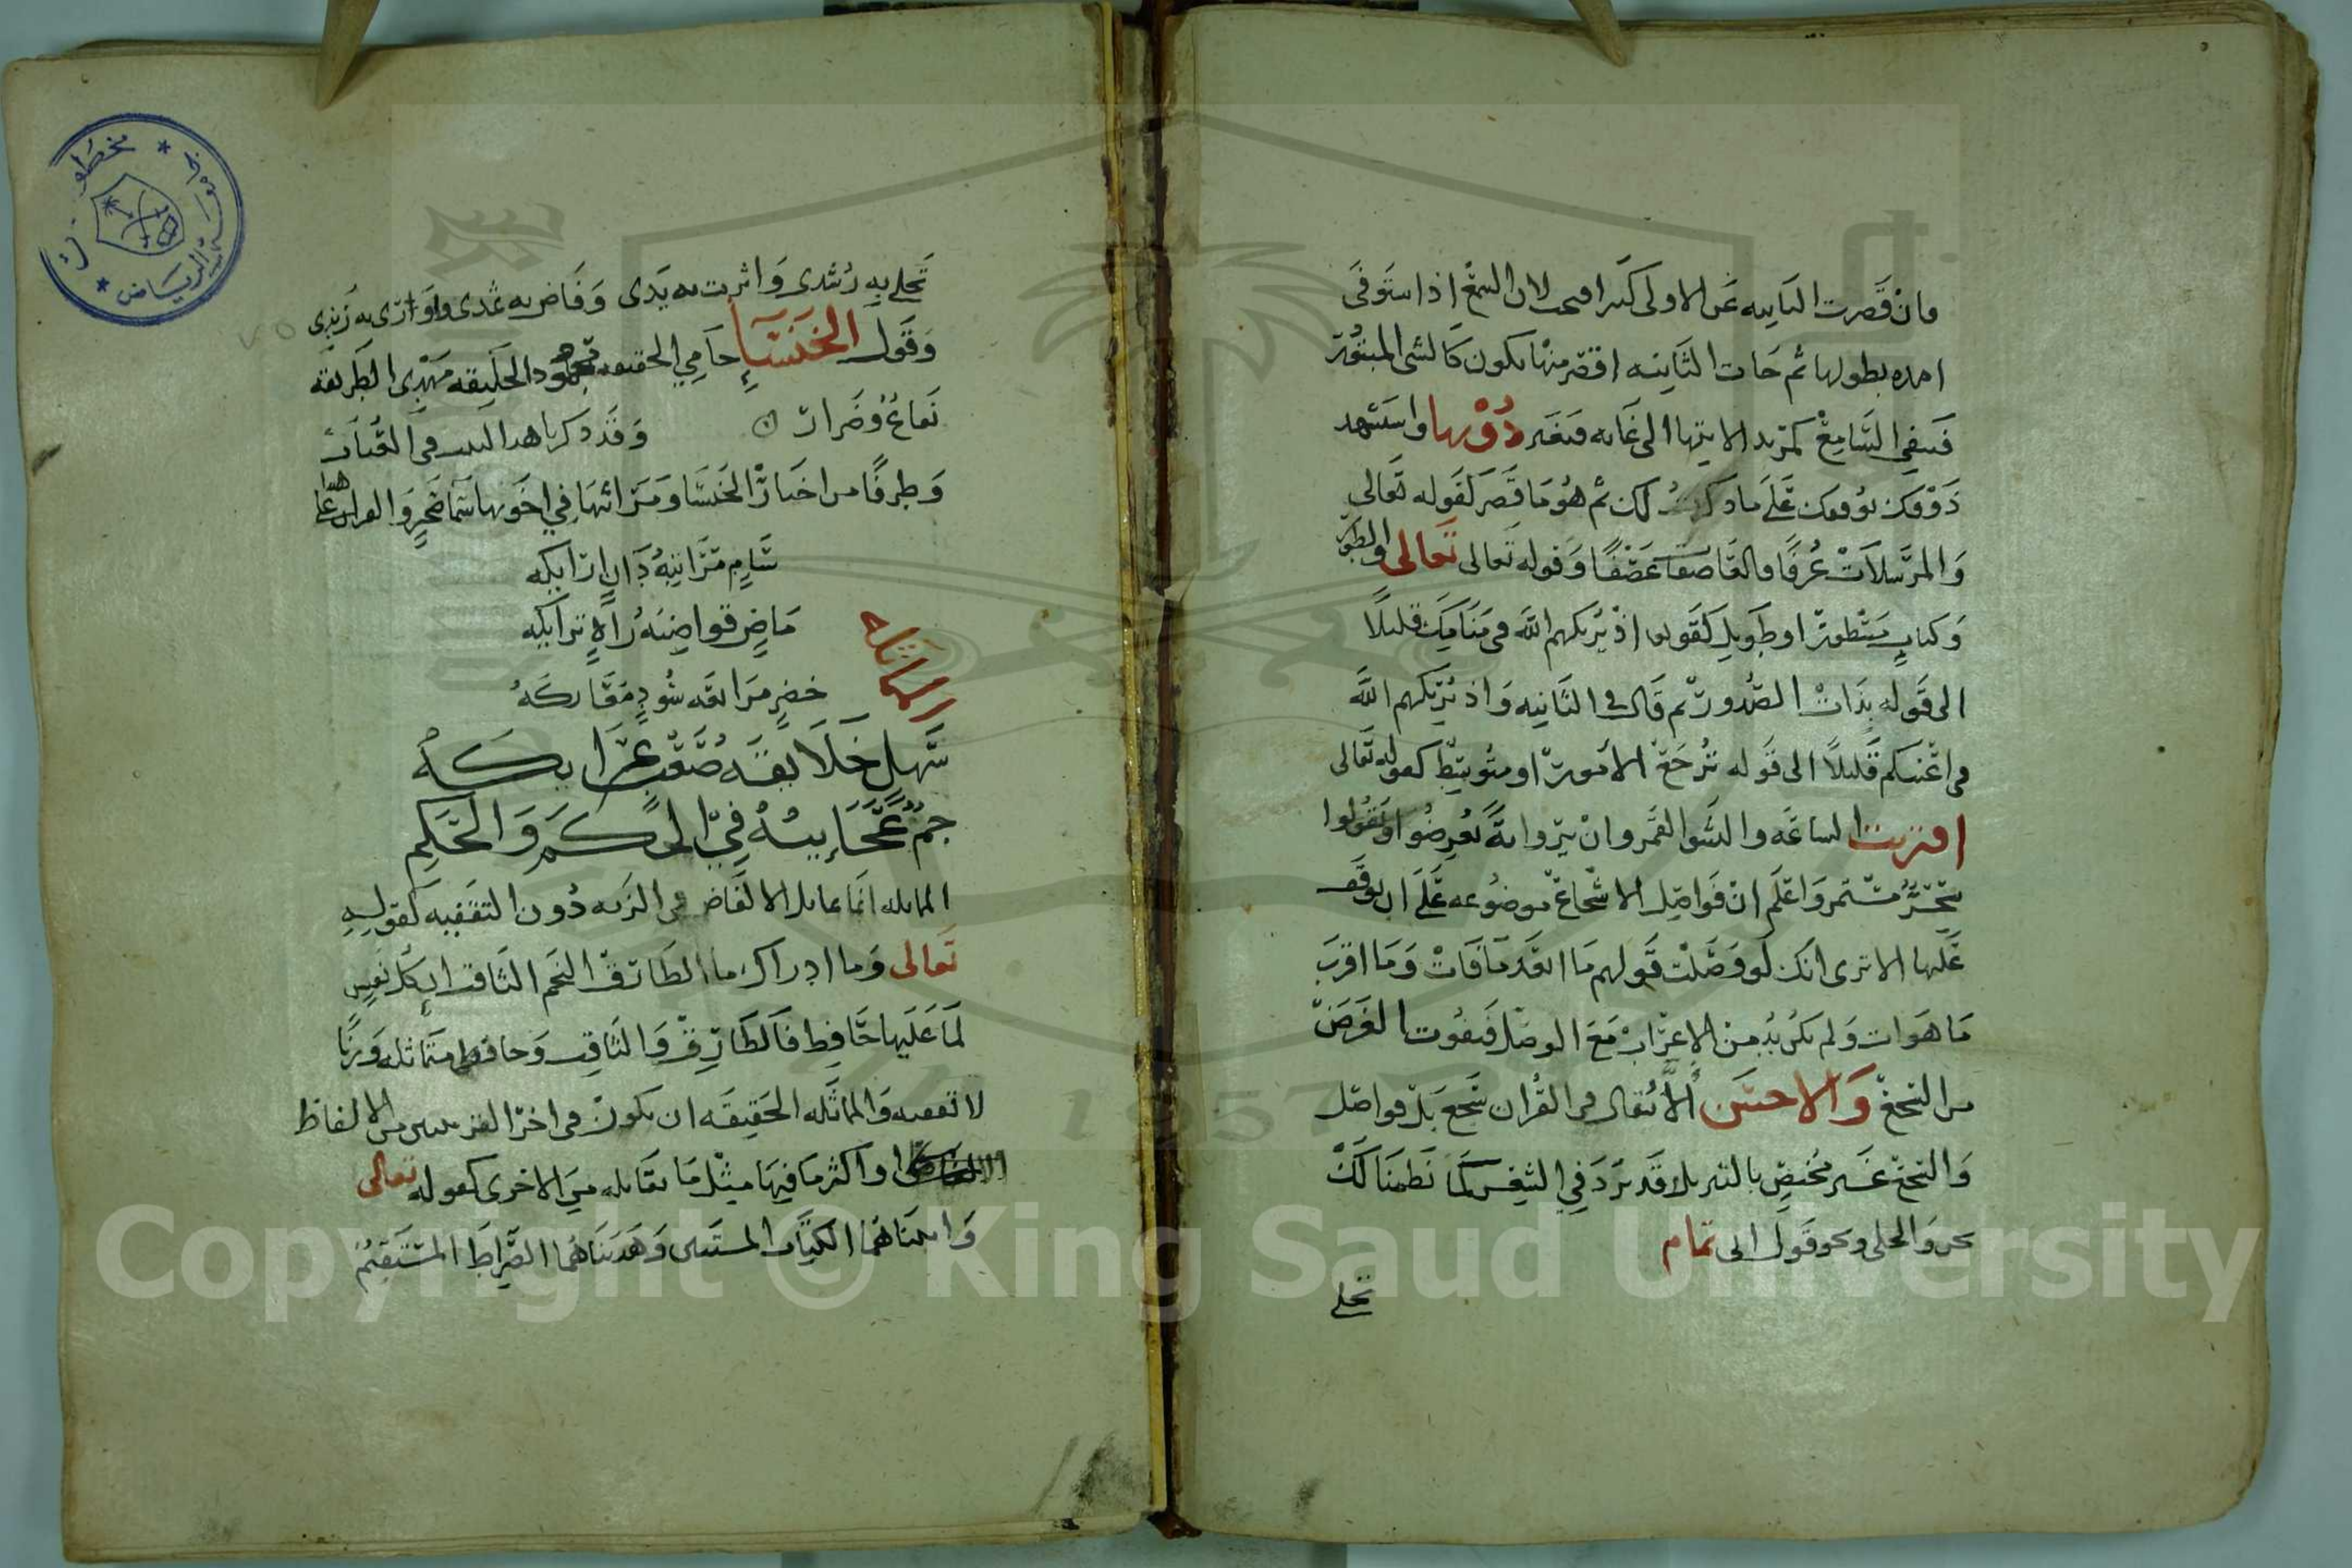 وان قصرت الثانيه عن الاولى كثيرا قبحت لان السمع اذا استوفى
امده بطولها ثم جات الثانيه اقصر منها يكون كالشى المبتور
فيبقى السامع كمن يريد الانتها الى غايه فيعثر دونها واستشهد
ذوقك يوقفك على ما ذكرت لك ثم هو ما قصر لقوله تعالى
والمرسلات عرفا فالعاصفات عصفا وقوله تعالى تعالى والطور
وكتاب مسطور او طويل كقوله اذ يريكهم الله فى منامك قليلا
الى قوله بذات الصدور ثم قال فى الثانيه واذ يريكهم الله
فى اعينكم قليلا الى قوله ترجع الامور او متوسط كقوله تعالى
اقتربت الساعه وانشق القمر وان يروا ايةً يعرضوا ويقولوا
سحر مستمر واعلم ان فواصل الاسجاع موضوعه على ان يوقف
عليها الا ترى انك لو وصلت قولهم ما ابعد ما فات وما اقرب
ما هو ات ولم يكن بد من الاعراب مع الوصل فيفوت الغرض
من السجع والاحسن الا يقال فى القران سجع بل فواصل
والسجع غير مختص بالنثر بلا قد يرد فى الشعر كما نظمنا لك
نحن والحلى ونحو قول ابى تمام
تجلى
تجلى به رشدى واثرت به يدى وفاض به ثمدى واورى به زندى
وقول الخنساءِ حامى الحقيقه محمود الخليقه مهدى الطريقه
نفاع وضرار وقد ذكرنا هذا البيت فى
وطرفًا من اخبار الخنسا ومراثيها فى اخوتها سيما صخرٍ
سام مراتبه دان
ماضٍ قواضبه راهٍ
المماثله
خضرٍ مرابعه سودٍ معاركهُ
سهل خلايقه صعب عرايكه
جم عجايبه فى الحكم والحكم
المماثله انما تماثل الالفاظ فى الزنه دون التقفيه كقوله
تعالى وما ادراك ما الطارق النجم الثاقب ان كل نفسٍ
لما عليها حافظ فالطارق والثاقب وحافظ متماثله وزنا
لا تقفيه والمماثله الحقيقه ان يكون فى اخر القرينتين من الالفاظ
او اكثر ما فيها مثل ما يقابله من الاخرى كقوله تعالى
واتيناهما الكتاب المستبين وهديناهما الصراط المستقيم